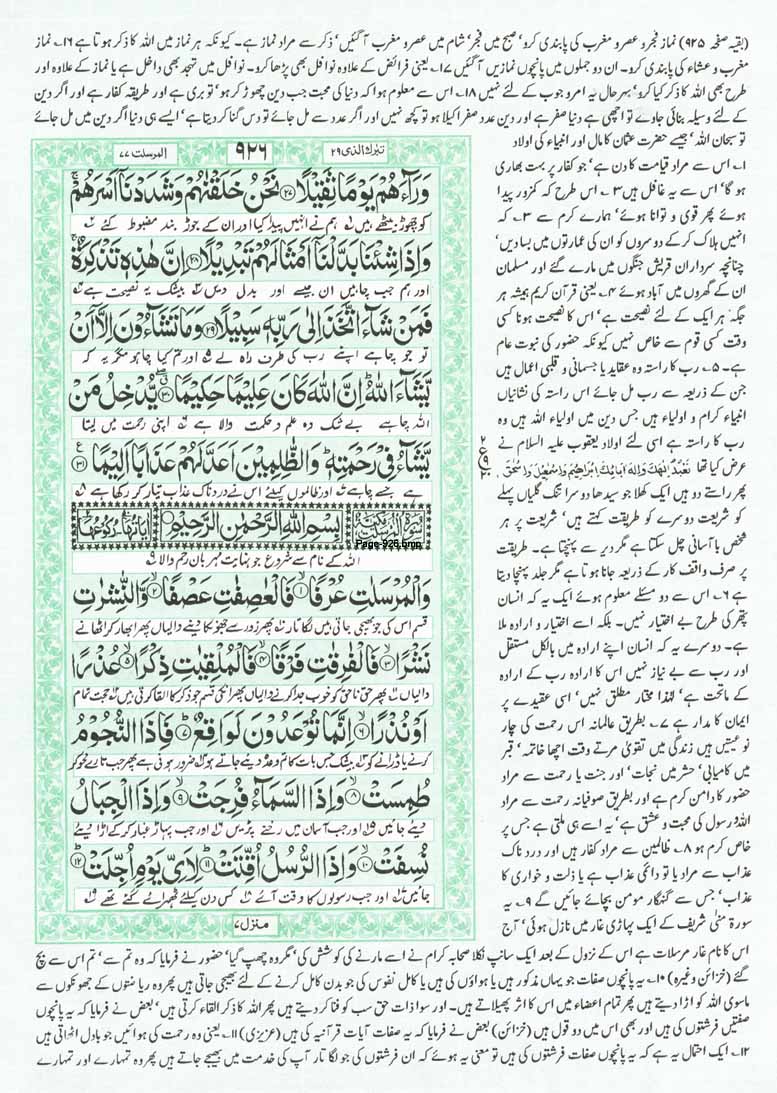 (بقیہ صفحہ ۹۲۵) نماز فجر و عصر و مغرب کی پابندی کرو' صبح میں فجر' شام میں عصر و مغرب آ گئیں' ذکر سے مراد نماز ہے۔ کیونکہ ہر نماز میں اللہ کا ذکر ہوتا ہے ۱۶۔ نماز
مغرب و عشاء کی پابندی کرو۔ ان دو جملوں میں پانچوں نمازیں آ گئیں ۱۷۔ یعنی فرائض کے علاوہ نوافل بھی پڑھا کرو۔ نوافل میں تہجد بھی داخل ہے یا نماز کے علاوہ اور
طرح بھی اللہ کا ذکر کیا کرو' بہرحال یہ امر وجوب کے لئے نہیں ۱۸۔ اس سے معلوم ہوا کہ دنیا کی محبت جب دین چھوڑ کر ہو' تو بری ہے اور طریقہ کفار ہے اور اگر دین
کے لئے وسیلہ بنائی جاوے تو اچھی ہے دنیا صفر ہے اور دین عدد صفر اکیلا ہو تو کچھ نہیں اور اگر عدد سے مل جائے تو دس گنا کر دیتا ہے' ایسے ہی دنیا اگر دین میں مل جائے
تو سبحان اللہ' جیسے حضرت عثمان کا مال اور انبیاء کی اولاد
۱۔ اس سے مراد قیامت کا دن ہے' جو کفار پر بہت بھاری
ہو گا' اس سے یہ غافل ہیں ۳۔ اس طرح کہ کمزور پیدا
ہوئے پھر قوی و توانا ہوئے' ہمارے کرم سے ۳۔ کہ
انہیں ہلاک کر کے دوسروں کو ان کی عمارتوں میں بسا دیں'
چنانچہ سرداران قریش جنگوں میں مارے گئے اور مسلمان
ان کے گھروں میں آباد ہوئے ۴۔ یعنی قرآن کریم ہمیشہ ہر
جگہ ہر ایک کے لئے نصیحت ہے' اس کا نصیحت ہونا کسی
وقت کسی قوم سے خاص نہیں کیونکہ حضور کی نبوت عام
ہے۔ ۵۔ رب کا راستہ وہ عقاید یا جسمانی و قلبی اعمال ہیں
جن کے ذریعہ سے رب مل جائے اس راستہ کی نشانیاں
انبیاء کرام و اولیاء ہیں جس دین میں اولیاء اللہ ہیں وہ
رب کا راستہ ہے اسی لئے اولاد یعقوب علیہ السلام نے
عرض کیا تھا نَعْبُدُ اِلٰهَكَ وَاِلٰهَ اٰبَآئِكَ اِبْرٰهِيْمَ وَاِسْمٰعِيْلَ وَاِسْحٰقَ
پھر راستے دو ہیں ایک کھلا جو سیدھا دوسرا تنگ گلیاں پہلے
کو شریعت دوسرے کو طریقت کہتے ہیں' شریعت پر ہر
شخص با آسانی چل سکتا ہے مگر دیر سے پہنچتا ہے۔ طریقت
پر صرف واقف کار کے ذریعہ جانا ہوتا ہے مگر جلد پہنچا دیتا
ہے ۶۔ اس سے دو مسئلے معلوم ہوئے ایک یہ کہ انسان
پتھر کی طرح بے اختیار نہیں۔ بلکہ اسے اختیار و ارادہ ملا
ہے۔ دوسرے یہ کہ انسان اپنے ارادہ میں بالکل مستقل
اور رب سے بے نیاز نہیں اس کا ارادہ رب کے ارادہ
کے ماتحت ہے' لہٰذا مختار مطلق نہیں' اسی عقیدے پر
ایمان کا مدار ہے ۷۔ بطریق عالمانہ اس رحمت کی چار
نوعیتیں ہیں زندگی میں تقویٰ مرتے وقت اچھا خاتمہ' قبر
میں کامیابی' حشر میں نجات' اور جنت یا رحمت سے مراد
حضور کا دامن کرم ہے اور بطریق صوفیانہ رحمت سے مراد
اللہ و رسول کی محبت و عشق ہے' یہ اسے ہی ملتی ہے جس پر
خاص کرم ہو ۸۔ ظالمین سے مراد کفار ہیں اور دردناک
عذاب سے مراد یا تو دائمی عذاب ہے یا ذلت و خواری کا
عذاب' جس سے گنہگار مومن بچائے جائیں گے ۹۔ یہ
سورۃ منیٰ شریف کے ایک پہاڑی غار میں نازل ہوئی' آج
تبرک الذی ۲۹
۹۲۶
المرسلت ۷۷
وَرَآءَهُمْ يَوْمًا ثَقِيْلًا ۲۷ نَحْنُ خَلَقْنٰهُمْ وَشَدَدْنَآ اَسْرَهُمْ
کو چھوڑ بیٹھے ہیں ہم نے انہیں پیدا کیا اور ان کے جوڑ بند مضبوط کئے
وَاِذَا شِئْنَا بَدَّلْنَآ اَمْثَالَهُمْ تَبْدِيْلًا ۲۸ اِنَّ هٰذِهٖ تَذْكِرَةٌ
اور ہم جب چاہیں ان جیسے اور بدل دیں بیشک یہ نصیحت ہے
فَمَنْ شَآءَ اتَّخَذَ اِلٰى رَبِّهٖ سَبِيْلًا ۲۹ وَمَا تَشَآءُوْنَ اِلَّآ اَنْ
تو جو چاہے اپنے رب کی طرف راہ لے اور تم کیا چاہو مگر یہ کہ
يَّشَآءَ اللّٰهُ اِنَّ اللّٰهَ كَانَ عَلِيْمًا حَكِيْمًا ۳۰ يُّدْخِلُ مَنْ
اللہ چاہے بے شک وہ علم و حکمت والا ہے اپنی رحمت میں لیتا
يَّشَآءُ فِيْ رَحْمَتِهٖ وَالظّٰلِمِيْنَ اَعَدَّ لَهُمْ عَذَابًا اَلِيْمًا ۳۱
ہے جسے چاہے اور ظالموں کیلئے اس نے دردناک عذاب تیار کر رکھا ہے
سورة المرسلت مكية
بِسْمِ اللّٰهِ الرَّحْمٰنِ الرَّحِيْمِ
Page-926.bmp
اللہ کے نام سے شروع جو نہایت مہربان رحم والا
وَالْمُرْسَلٰتِ عُرْفًا ۱ فَالْعٰصِفٰتِ عَصْفًا ۲ وَّالنّٰشِرٰتِ
قسم ان کی جو بھیجی جاتی ہیں لگاتار پھر زور سے جھونکا دینے والیاں پھر ابھار کر اٹھانے
نَشْرًا ۳ فَالْفٰرِقٰتِ فَرْقًا ۴ فَالْمُلْقِيٰتِ ذِكْرًا ۵ عُذْرًا
والیاں پھر حق ناحق کو خوب جدا کرنے والیاں پھر ان کی قسم جو ذکر کا القا کرتی ہیں حجت تمام
اَوْ نُذْرًا ۶ اِنَّمَا تُوْعَدُوْنَ لَوَاقِعٌ ۷ فَاِذَا النُّجُوْمُ
کرنے یا ڈرانے کو بیشک جس بات کا تم وعدہ دیئے جاتے ہو ضرور ہونی ہے پھر جب تارے محو کر
طُمِسَتْ ۸ وَاِذَا السَّمَآءُ فُرِجَتْ ۹ وَاِذَا الْجِبَالُ
دیئے جائیں اور جب آسمان میں رخنے پڑیں اور جب پہاڑ غبار کر کے اڑا دیئے
نُسِفَتْ ۱۰ وَاِذَا الرُّسُلُ اُقِّتَتْ ۱۱ لِاَيِّ يَوْمٍ اُجِّلَتْ ۱۲
جائیں اور جب رسولوں کا وقت آئے کس دن کیلئے ٹھہرائے گئے تھے
منزل ۷
اس کا نام غار مرسلات ہے اس کے نزول کے بعد ایک سانپ نکلا صحابہ کرام نے اسے مارنے کی کوشش کی' مگر وہ چھپ گیا' حضور نے فرمایا کہ وہ تم سے' تم اس سے بچ
گئے (خزائن وغیرہ) ۱۰۔ یہ پانچوں صفات جو یہاں مذکور ہیں یا ہواؤں کی ہیں یا کامل نفوس کی جو بدن کامل کرنے کے لئے بھیجی جاتی ہیں پھر وہ ریاضتوں کے جھونکوں سے
ماسوی اللہ کو اڑا دیتے ہیں پھر تمام اعضاء میں اس کا اثر پھیلاتے ہیں۔ اور سوا ذات حق سب کو فنا کر دیتے ہیں پھر اللہ کا ذکر القاء کرتی ہیں' بعض نے فرمایا کہ یہ پانچوں
صفتیں فرشتوں کی ہیں اور بھی اس میں دو قول ہیں (خزائن) بعض نے فرمایا کہ یہ صفات آیات قرآنیہ کی ہیں (عزیزی) ۱۱۔ یعنی وہ رحمت کی ہوائیں جو بادل اٹھاتی ہیں
۱۲۔ ایک احتمال یہ ہے کہ یہ پانچوں صفات فرشتوں کی ہیں تو معنی یہ ہوئے کہ ان فرشتوں کی جو لگاتار آپ کی خدمت میں بھیجے جاتے ہیں پھر وہ تمہارے اور تمہارے